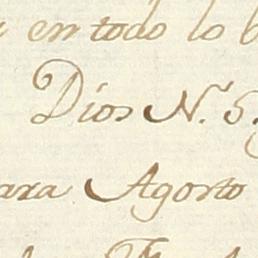 en todo lo
Dios N. S.
ara Agosto